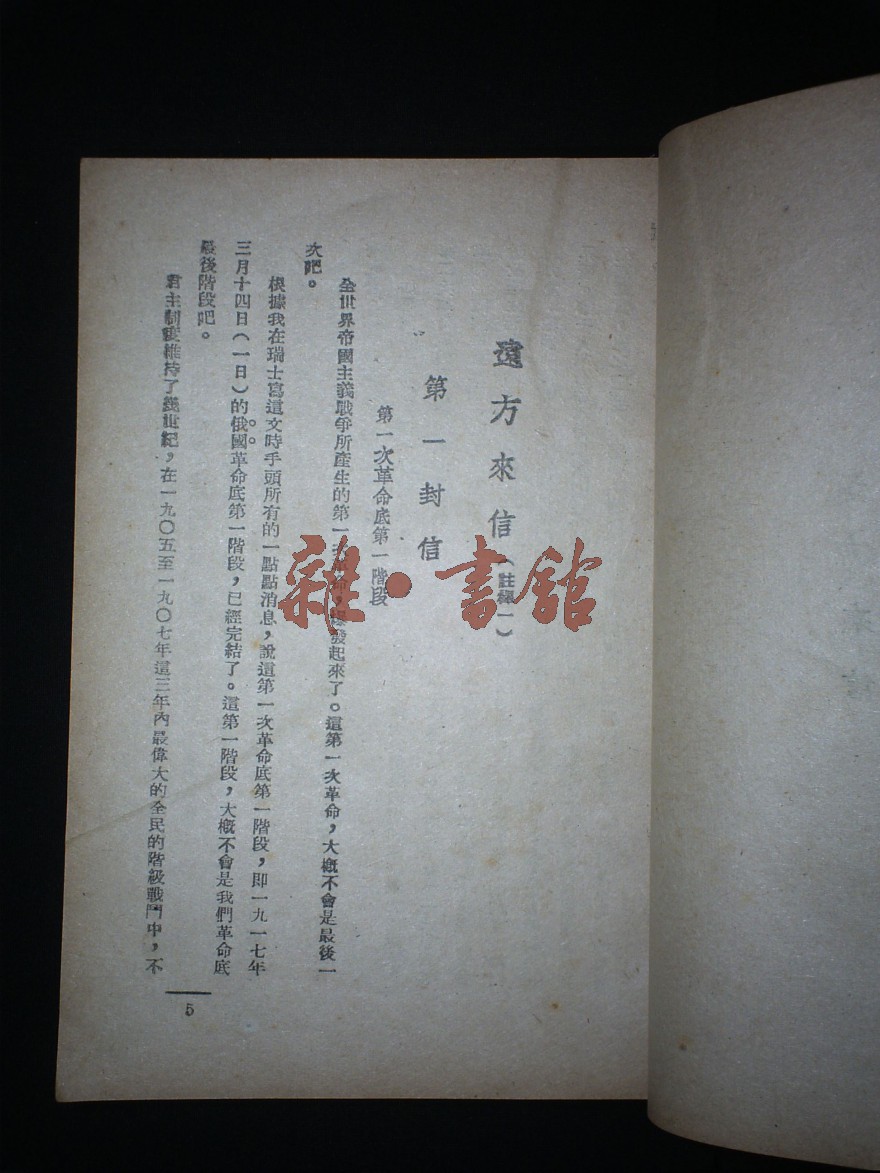 遠方來信（註釋一）
第一封信
第一次革命底第一階段
全世界帝國主義戰爭所產生的第一次革命，爆發起來了。這第一次革命，大概不會是最後一
次吧。
根據我在瑞士寫這文時手頭所有的一點點消息，說這第一次革命底第一階段，即一九一七年
三月十四日（一日）的俄國革命底第一階段，已經完結了。這第一階段，大概不會是我們革命底
最後階段吧。
君主制度維持了幾世紀，在一九〇五至一九〇七年這三年內最偉大的全民的階級戰鬥中，不
5
雜·書館